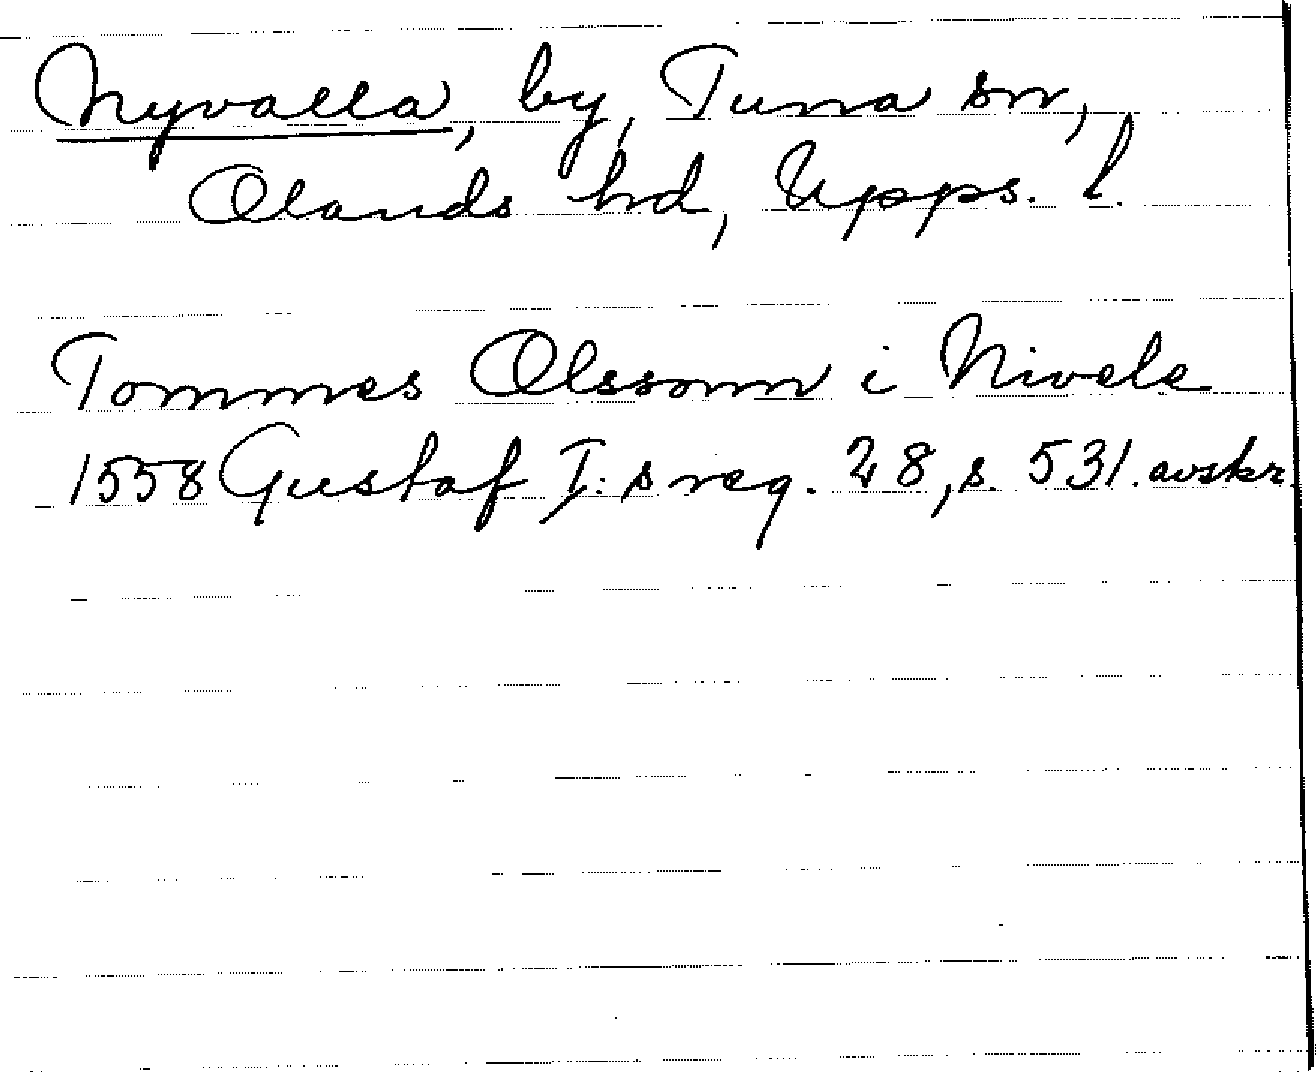 Nyvalla, by, Tuna sn,
Olands hd, Upps. l.
Tommes Olssonn i Nivele
1558 Gustaf I:s reg. 28, s. 531. avskr.